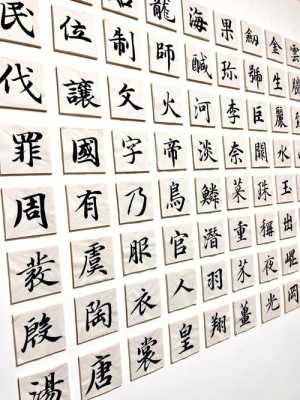 雲
金生麗水玉出崐岡
劒號巨闕珠稱夜光
果珎李柰菜重芥薑
海鹹河淡鱗潛羽翔
龍師火帝鳥官人皇
制文字乃服衣裳
位讓國有虞陶唐
民伐罪周發殷湯